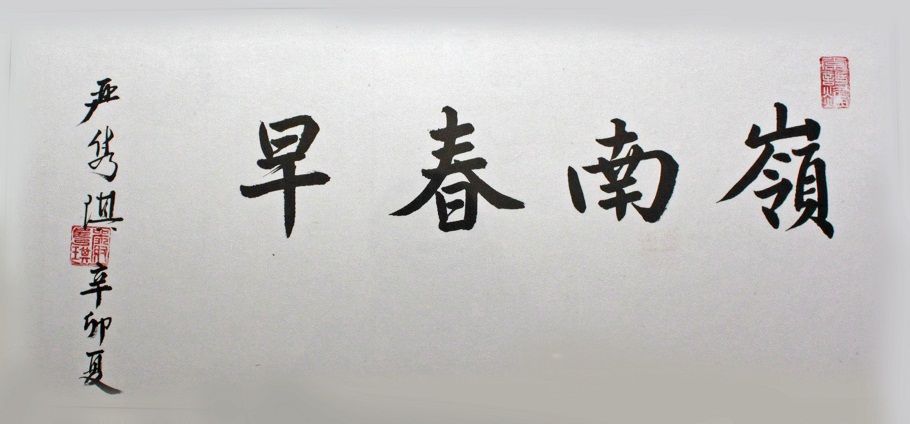 嶺南春早
严隽琪
辛卯夏